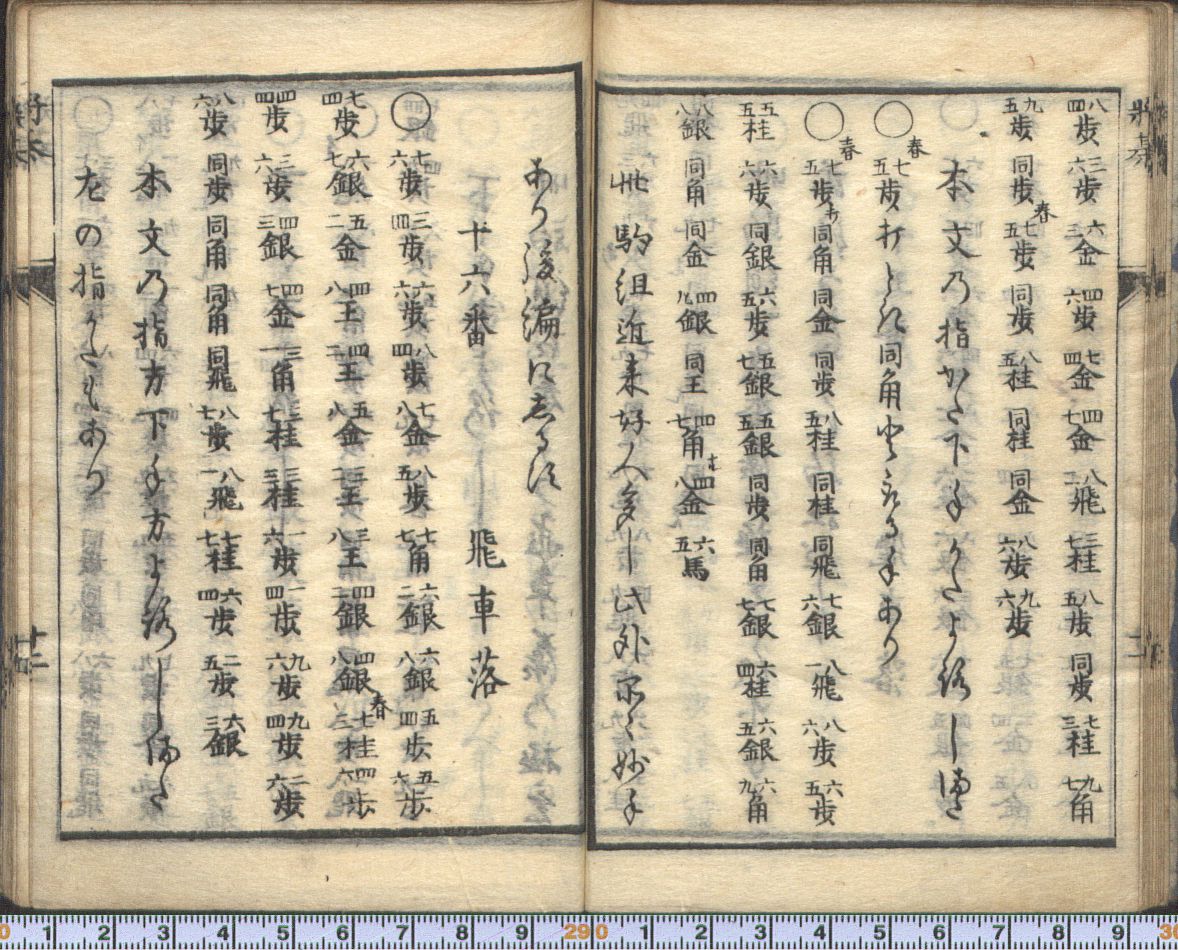 八四歩 三六歩 六三金 四六歩 七四金 四七金 八二飛 三七桂 八五歩 同歩 七三桂 九七角
九五歩 同歩 春 七五歩 同歩 八五桂 同桂 同金 八六歩 九六歩
本文乃指かた下手かたよろしまた
○ 春 七五歩 打とき同角 る手あり
○ 春 七五歩 同角 同金 同歩 八五桂 同桂 同飛 七六銀 八一飛 八六歩 六五歩
五五桂 六六歩 同銀 六五歩 五七銀 五五銀 同歩 同角 七七銀 六四桂 六五銀 六九角
八八銀 同角 同金 四九銀 同王 四七角 四八金 六五馬
此駒組近来好人多し此外品々妙手
あり後編に志るす
十六番 飛車落
○ 七六歩 三四歩 六六歩 八四歩 七八金 八五歩 七七角 六二銀 六八銀 五四歩 五六歩
七四歩 六七銀 五二金 四八王 四二王 五八金 三二王 三八王 四二銀 四八銀 春 七三桂 四六歩
四四歩 三六歩 四三銀 四七金 三一角 三七桂 三三桂 一六歩 一四歩 九六歩 九四歩 二六歩
八六歩 同歩 同角 同角 同飛 八七歩 八一飛 七七桂 六四歩 二五歩 六三銀
本文乃指方下手方よろしまた
左の指かたもあり
十二